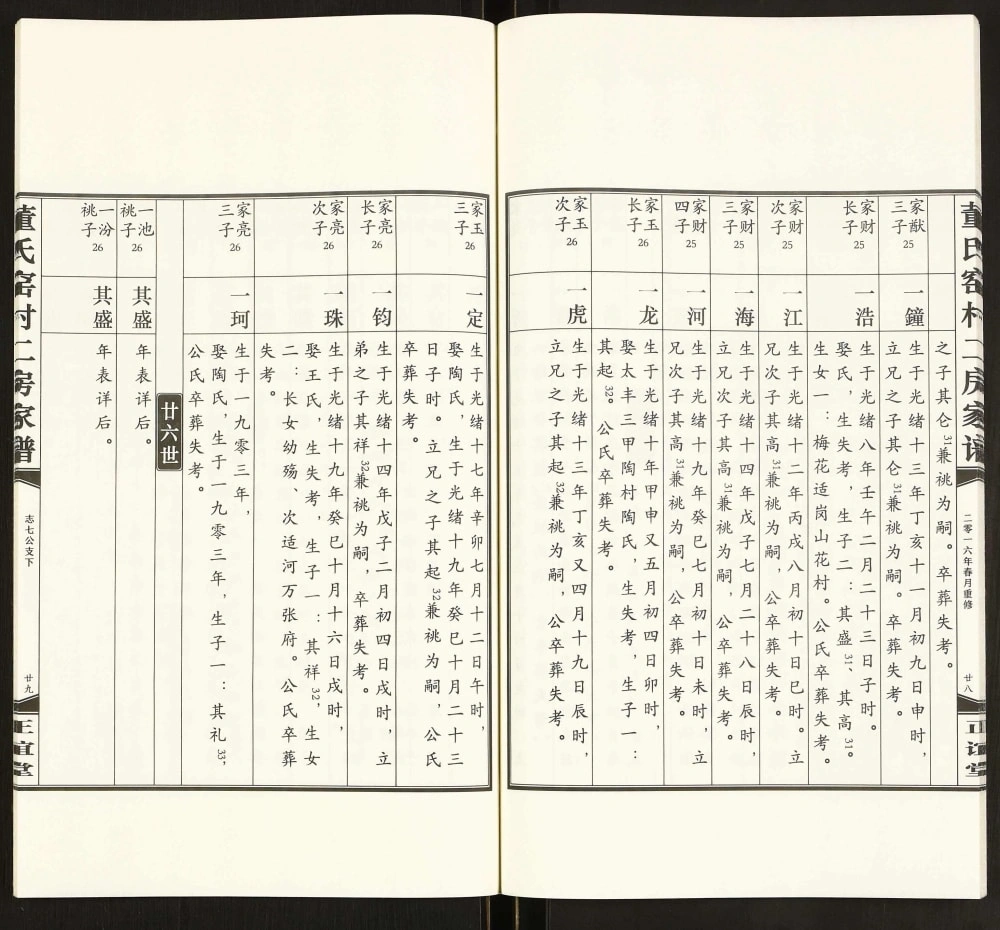 董氏窑村二房家谱
二零一六年春月重修
廿八
正谊堂
之子其仑31兼祧为嗣。卒葬失考。
家猷
三子25
一鐘
生于光绪十三年丁亥十一月初九日申时，
立兄之子其仑31兼祧为嗣。卒葬失考。
家财
长子25
一浩
生于光绪八年壬午二月二十三日子时。
娶氏，生失考，生子二：其盛31、其高31。
生女一：梅花适岗山花村。公氏卒葬失考。
家财
次子25
一江
生于光绪十二年丙戌八月初十日巳时。立
兄次子其高31兼祧为嗣，公卒葬失考。
家财
三子25
一海
生于光绪十四年戊子七月二十八日辰时，
立兄次子其高31兼祧为嗣，公卒葬失考。
家财
四子25
一河
生于光绪十九年癸巳七月初十日未时，立
兄次子其高31兼祧为嗣，公卒葬失考。
家玉
长子26
一龙
生于光绪十年甲申又五月初四日卯时，
娶太丰三甲陶村陶氏，生失考，生子一：
其起32。公氏卒葬失考。
家玉
次子26
一虎
生于光绪十三年丁亥又四月十九日辰时，
立兄之子其起32兼祧为嗣，公卒葬失考。
家玉
三子26
一定
生于光绪十七年辛卯七月十二日午时，
娶陶氏，生于光绪十九年癸巳十月二十三
日子时。立兄之子其起32兼祧为嗣，公氏
卒葬失考。
家亮
长子26
一钧
生于光绪十四年戊子二月初四日戌时，立
弟之子其祥32兼祧为嗣，卒葬失考。
家亮
次子26
一珠
生于光绪十九年癸巳十月十六日戌时，
娶王氏，生失考，生子一：其祥32，生女
二：长女幼殇、次适河万张府。公氏卒葬
失考。
家亮
三子26
一珂
生于一九零三年，
娶陶氏，生于一九零三年，生子一：其礼33，
公氏卒葬失考。
廿六世
一池
祧子26
其盛
年表详后。
一汾
祧子26
其盛
年表详后。
董氏窑村二房家谱
志七公支下
廿九
正谊堂